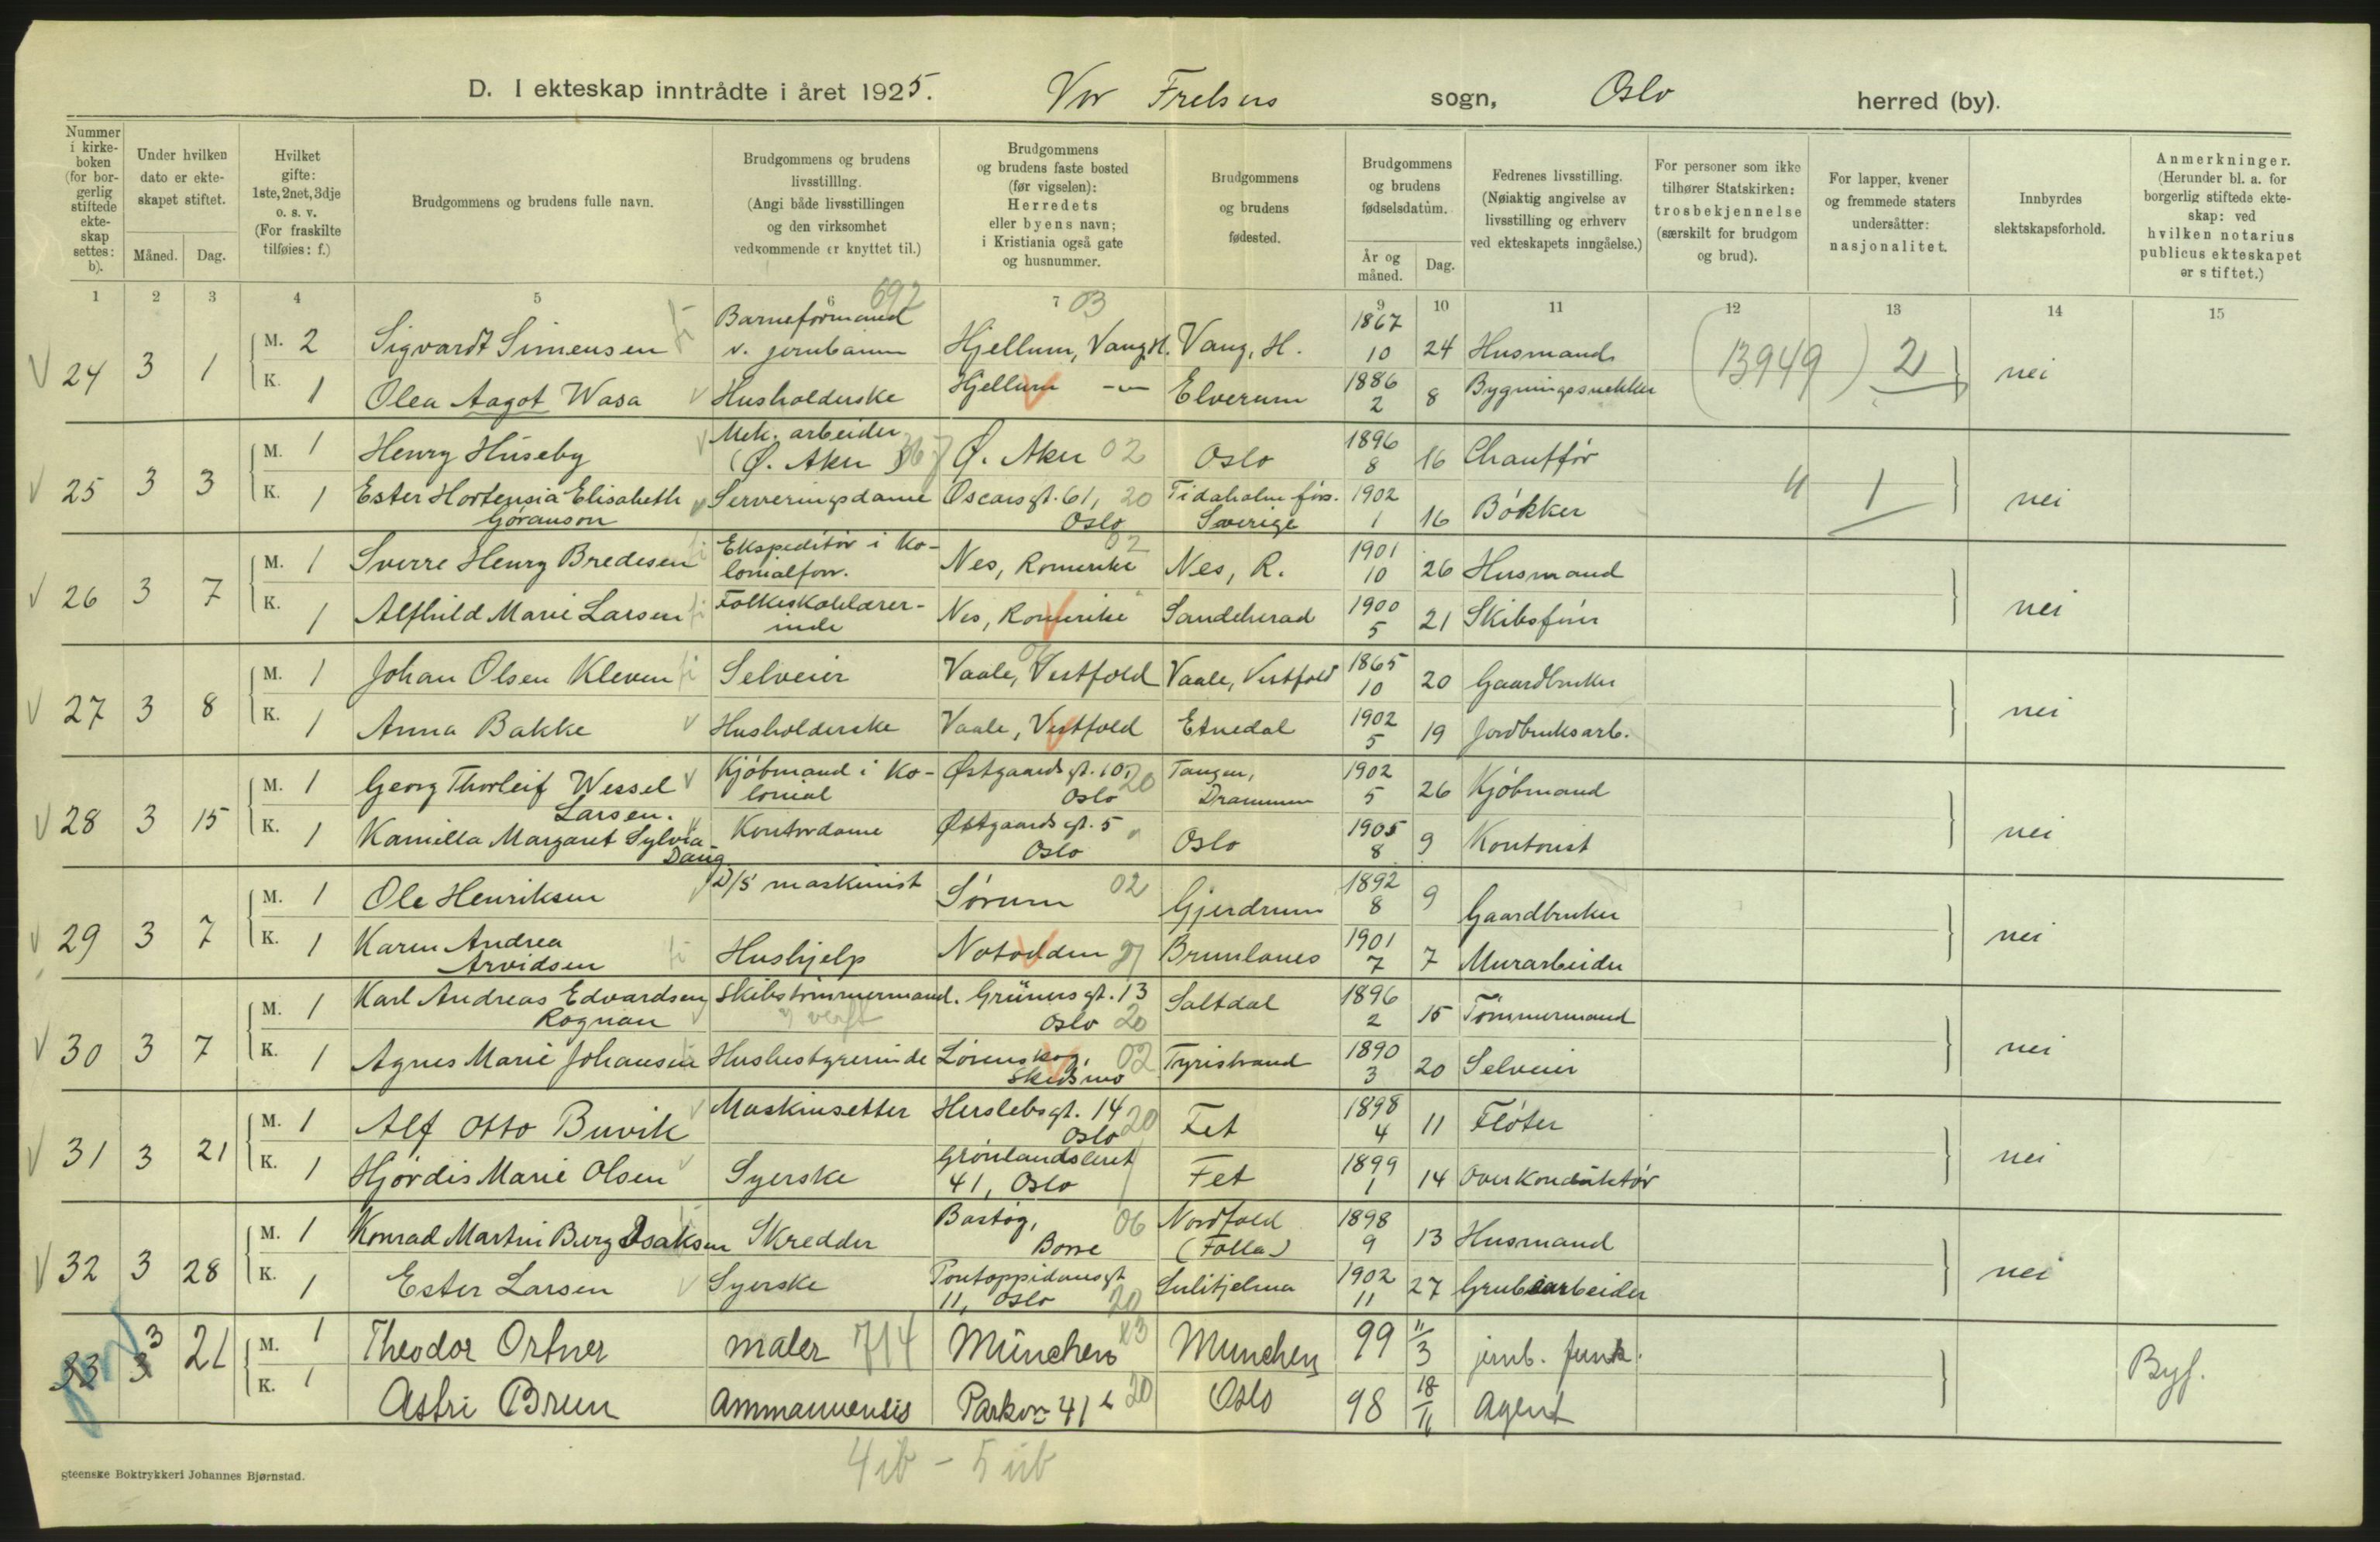 D. I ekteskap inntrådte i året 1925. Vor Frelsers sogn, Oslo herred (by).
Nummer i kirke-boken (for bor-gerlig stiftede ekte-skap settes: b).
Under hvilken dato er ekte-skapet stiftet.
Måned. Dag.
Hvilket gifte: 1ste, 2net, 3dje o. s. v. (For fraskilte tilføies: f.)
Brudgommens og brudens fulle navn.
Brudgommens og brudens livsstilling. (Angi både livsstillingen og den virksomhet vedkommende er knyttet til.)
Brudgommens og brudens faste bosted (før vigselen): Herredets eller byens navn; i Kristiania også gate og husnummer.
Brudgommens og brudens fødested.
Brudgommens og brudens fødselsdatum.
År og måned. Dag.
Fedrenes livsstilling. (Nøiaktig angivelse av livsstilling og erhverv ved ekteskapets inngåelse.)
For personer som ikke tilhører Statskirken: trosbekjennelse (særskilt for brudgom og brud).
For lapper, kvener og fremmede staters undersåtter: nasjonalitet.
Innbyrdes slektskapsforhold.
Anmerkninger. (Herunder bl. a. for borgerlig stiftede ekte-skap: ved hvilken notarius publicus ekteskapet er stiftet.)
1 2 3 4 5 6 7 9 10 11 12 13 14 15
692 03
24 3 1 M. 2 Sigvardt Simensen Barneformand v. jernbanen Hjellum, Vang H. Vang, H. 1867 10 24 Husmand (13949) 2 nei
K. 1 Olea Aagot Wasa Husholderske Hjellum -"- Elverum 1886 2 8 Bygningssnekker
25 3 3 M. 1 Henry Huseby Mek. arbeider (Ø. Aker) Ø. Aker 02 Oslo 1896 8 16 Chauffør 4 1 nei
K. 1 Ester Hortensia Elisabeth Göranson Serveringsdame Oscarsgt. 61, 20 Oslo Tidaholm förs. Sverige 1902 1 16 Bøkker
26 3 7 M. 1 Sverre Henry Bredesen Ekspeditør i Ko-lonialforr. Nes, Romerike 02 Nes, R. 1901 10 26 Husmand nei
K. 1 Alfhild Marie Larsen Folkeskolelærer-inde Nes, Romerike Sandeherad 1900 5 21 Skibsfører
27 3 8 M. 1 Johan Olsen Kleven Selveier Vaale, Vestfold Vaale, Vestfold 1865 10 20 Gaardbruker nei
K. 1 Anna Bakke Husholderske Vaale, Vestfold Etnedal 1902 5 19 Jordbruksarb.
28 3 15 M. 1 Georg Thorleif Wessel Larsen. Kjøbmand i Ko-lonial Østgaards gt. 10, 20 Oslo Tangen, Drammen 1902 5 26 Kjøbmand nei
K. 1 Kamilla Margaret Sylvia Dang Kontordame Østgaards gt. 5 Oslo Oslo 1905 8 9 Kontorist
29 3 7 M. 1 Ole Henriksen D/S maskinist Sørum 02 Gjerdrum 1892 8 9 Gaardbruker nei
K. 1 Karen Andrea Arvidsen Hushjelp Notodden Brunlanes 1901 7 7 Murarbeider
30 3 7 M. 1 Karl Andreas Edvardsen Rognan Skibstømmermand. verft Grüners gt. 13 Oslo 20 Saltdal 1896 2 15 Tømmermand nei
K. 1 Agnes Marie Johansen Husbestyrerinde Lørenskog, 02 Skedsmo Tyristrand 1890 3 20 Selveier
31 3 21 M. 1 Alf Otto Buvik Maskinsetter Herslebs gt. 14 Oslo 20 Fet 1898 4 11 Fløter nei
K. 1 Hjørdis Marie Olsen Syerske Grønlandsleret 41, Oslo Fet 1899 1 14 Overkonduktør
32 3 28 M. 1 Konrad Martin Berg Isaksen Skredder Bastøy, 06 Borre Nordfold (Folla) 1898 9 13 Husmand nei
K. 1 Ester Larsen Syerske Pontoppidansgt 11, Oslo 20 Sulitjelma 1902 11 27 Grubearbeider
33 3 21 M. 1 Theodor Ortner maler 714 München München 99 11/3 jernb. funk. Byf.
K. 1 Astri Brun Ammanuensis Parkvn 41 b 20 Oslo 98 18/11 Agent
4 ib - 5 ub
gteenske Boktrykkeri Johannes Bjørnstad.